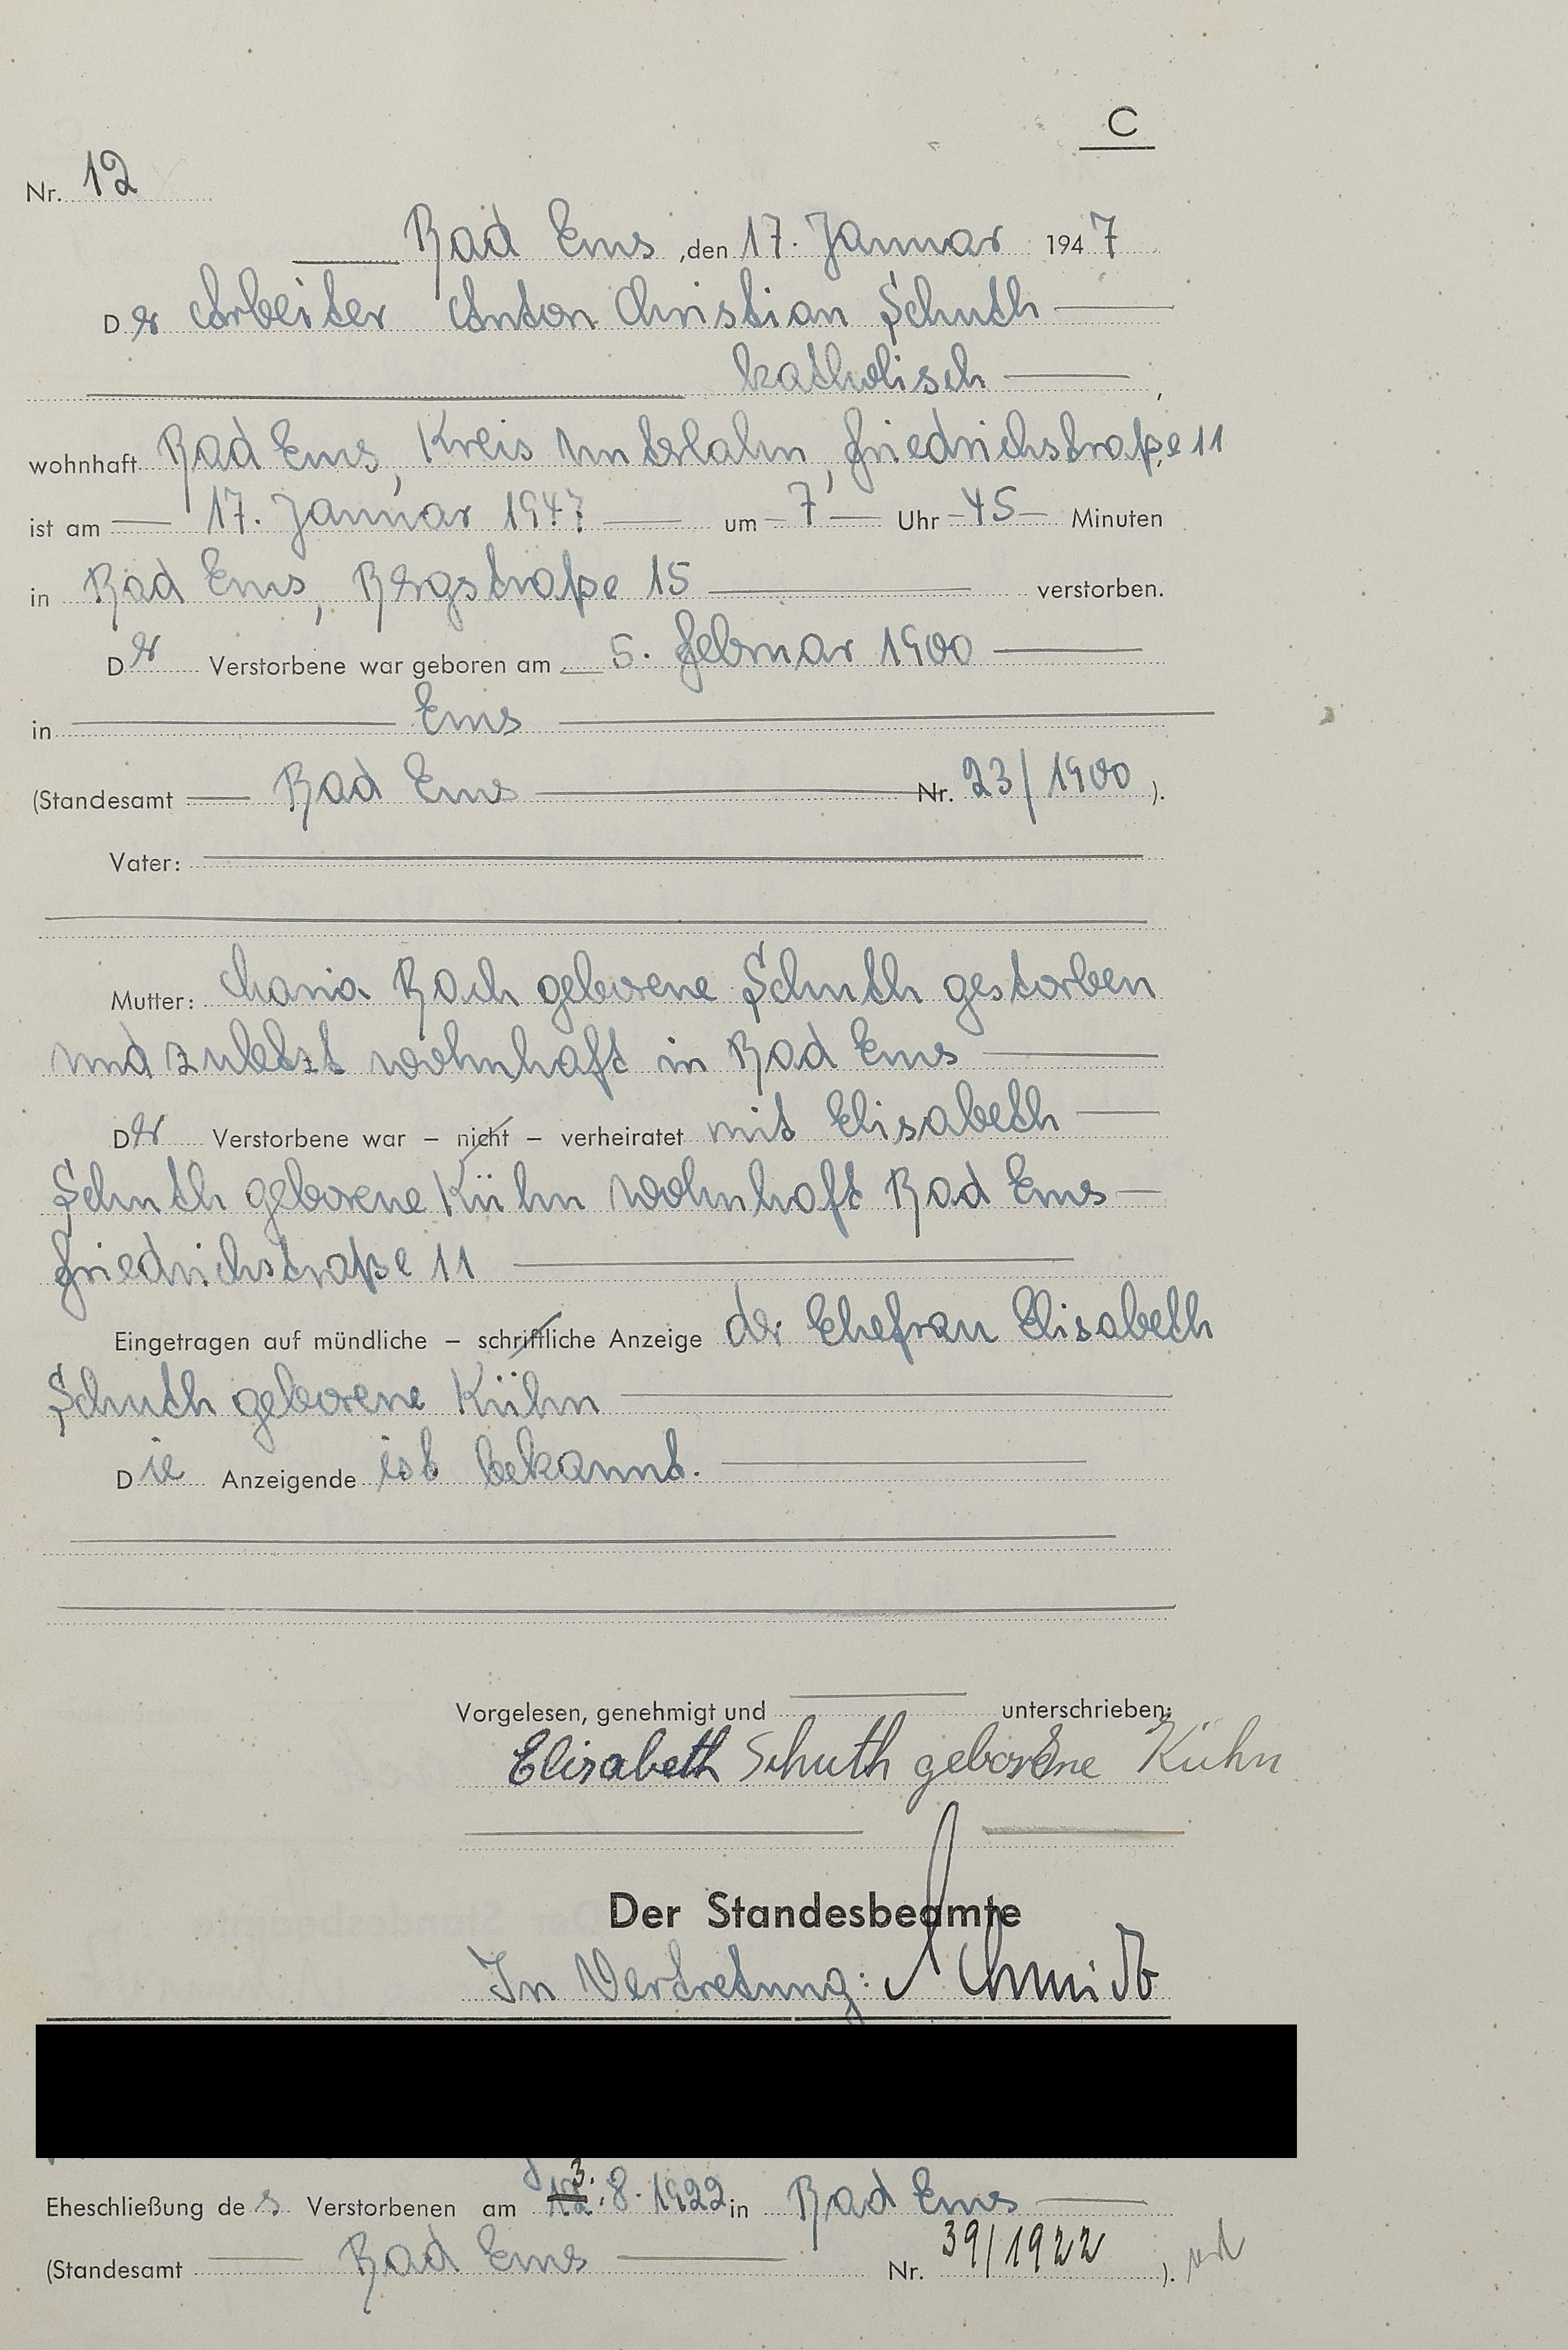 C
Nr. 12
Bad Ems, den 17. Januar 1947
Der Arbeiter Anton Christian Schuth
katholisch,
wohnhaft Bad Ems, Kreis Unterlahn, Friedrichstraße 11
ist am 17. Januar 1947 um 7 Uhr 45 Minuten
in Bad Ems, Bergstraße 15 verstorben.
Der Verstorbene war geboren am 5. Februar 1900
in Ems
(Standesamt Bad Ems Nr. 23/1900).
Vater:
Mutter: Maria Bach geborene Schuth gestorben
und zuletzt wohnhaft in Bad Ems
Der Verstorbene war – nicht – verheiratet mit Elisabeth
Schuth geborene Kühn wohnhaft Bad Ems
Friedrichstraße 11
Eingetragen auf mündliche – schriftliche Anzeige der Ehefrau Elisabeth
Schuth geborene Kühn
Die Anzeigende ist bekannt.
Vorgelesen, genehmigt und unterschrieben:
Elisabeth Schuth geborene Kühn
Der Standesbeamte
In Vertretung: Schmidt
Eheschließung des Verstorbenen am 3.8.1922 in Bad Ems
(Standesamt Bad Ems Nr. 39/1922).